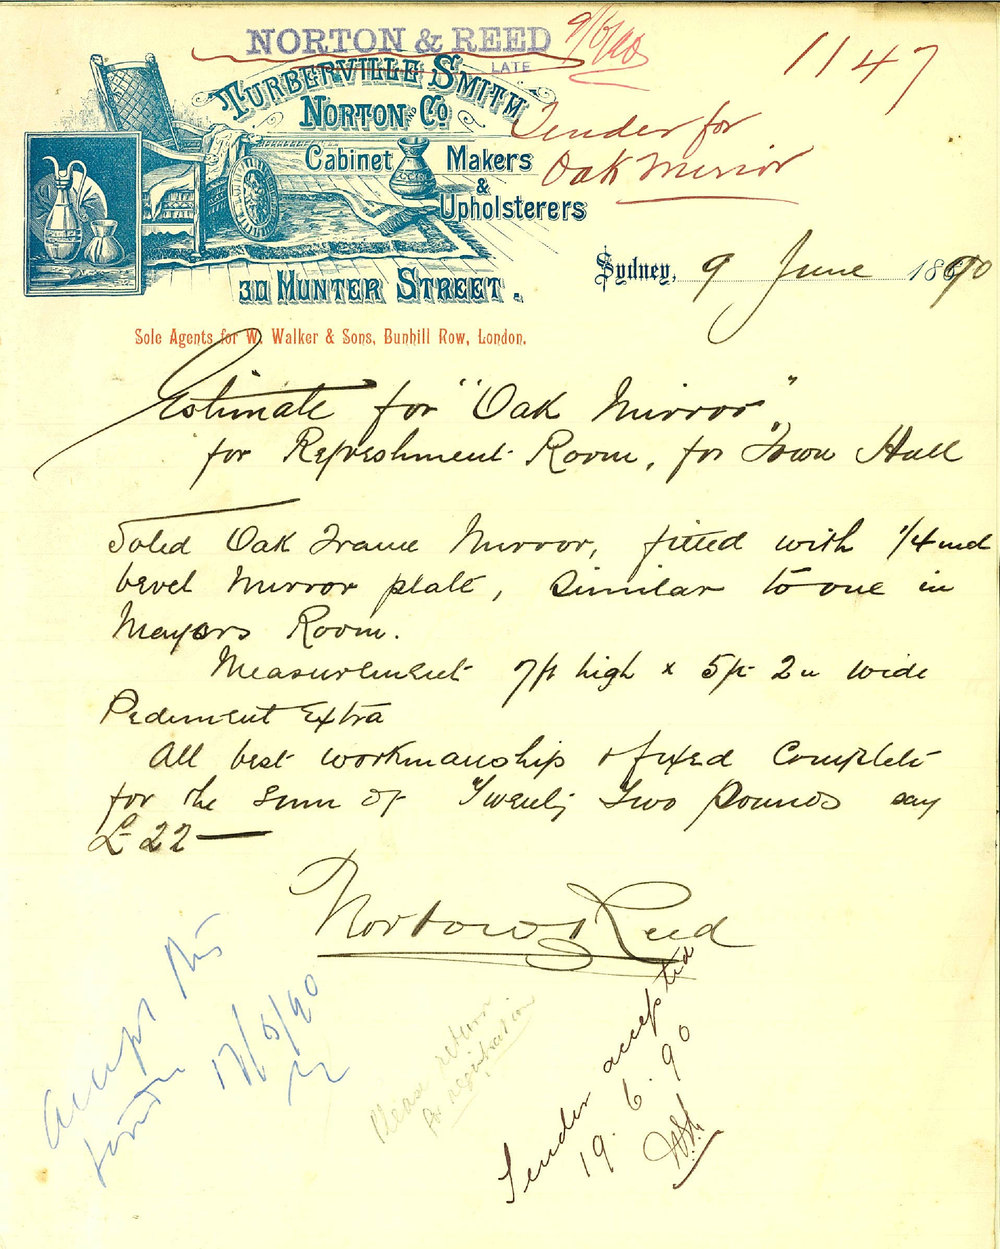 NORTON & REED
9/6/90
1147
LATE
TURBERVILLE SMITH
NORTON AND CO
Tender for
Oak Mirror
Cabinet Makers
&
Upholsterers
30 HUNTER STREET.
Sydney, 9 June 1890
Sole Agents for W. Walker & Sons, Bunhill Row, London.
Estimate for "Oak Mirror"
for Refreshment Room, for Town Hall
Solid Oak Frame Mirror, fitted with 1/4 inch
bevel Mirror plate, similar to one in
Mayors Room.
Measurement 7ft high x 5ft 2in wide
Pediment Extra
All best workmanship & fixed Complete
for the sum of Twenty Two Pounds say
£22—
Norton & Reed
accept this
tender 17/6/90
Please return
for registration
Tender accepted
19.6.90